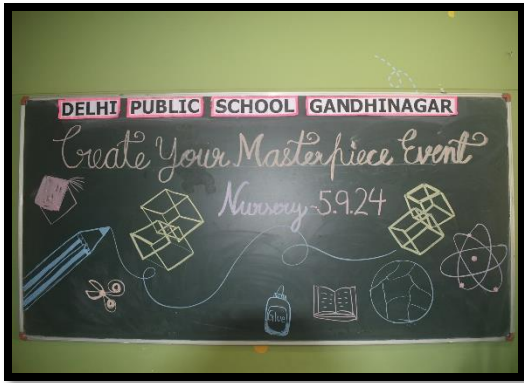 DELHI PUBLIC SCHOOL GANDHINAGAR
Create Your Masterpiece Event
Nursery-5.9.24
Glue